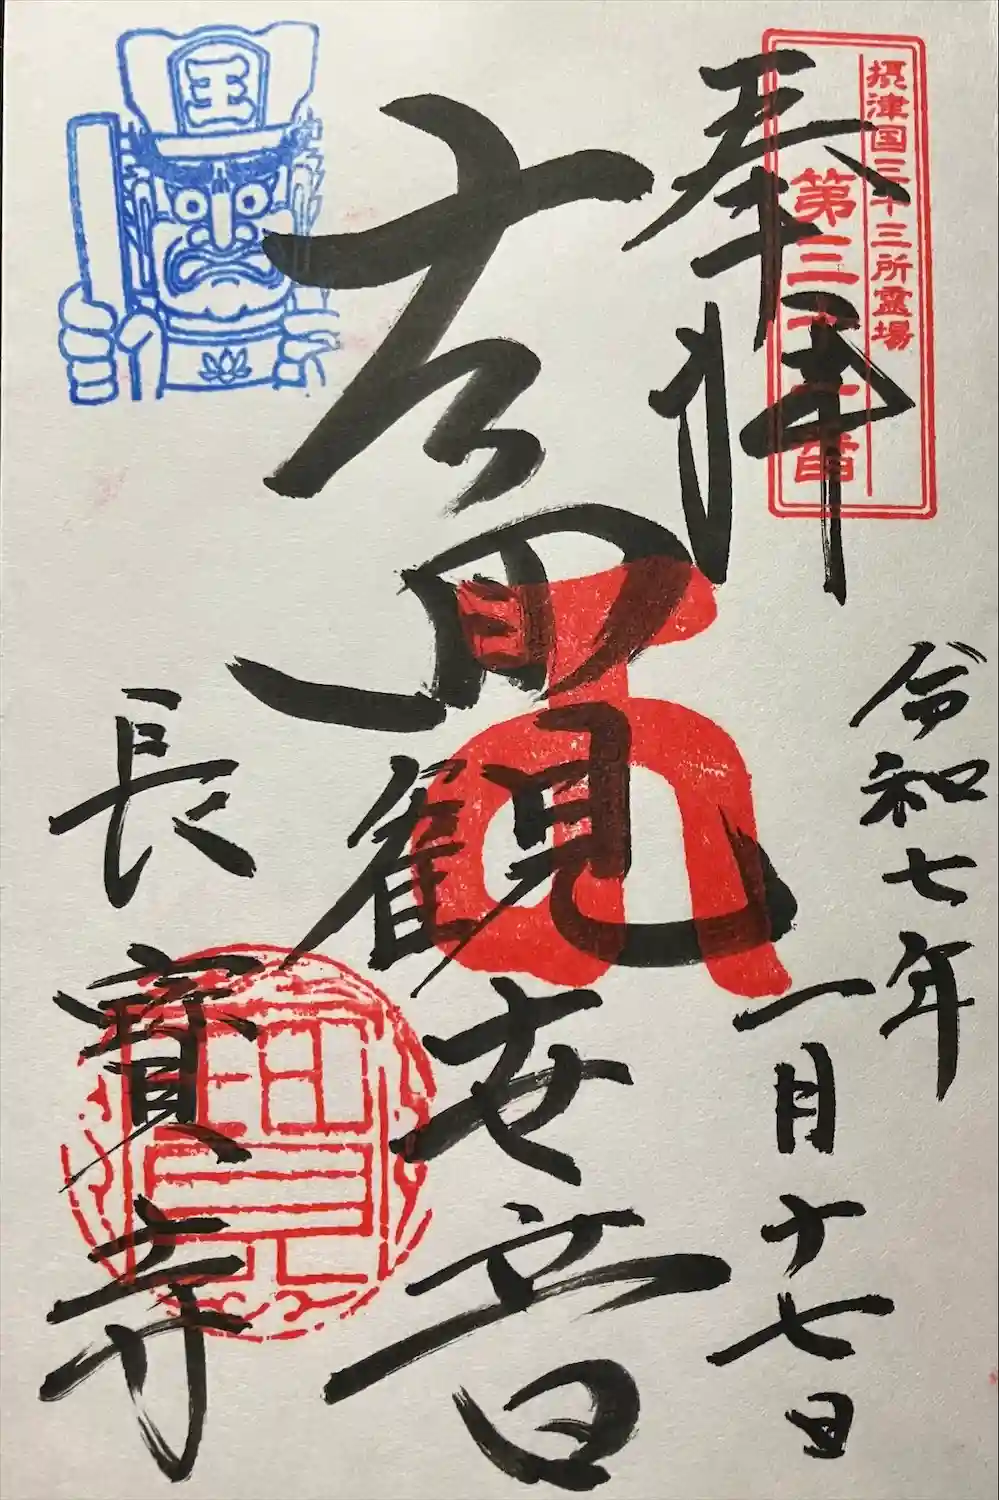 摂津国三十三所霊場
第三十一番
奉拝
令和七年
一月十七日
十一面
觀世音
長寶寺
王